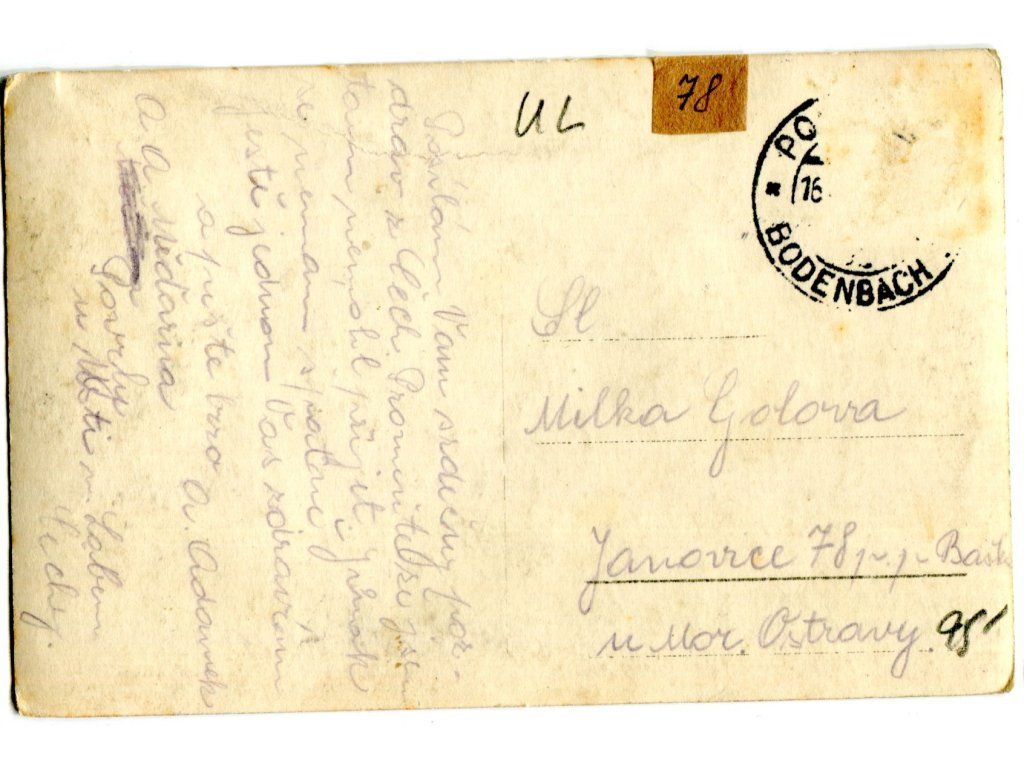 UL
78
PO
16
* BODENBACH
Posílám Vám srdečný poz-
drav z Čech Prominte že jsem
tam nemohl přijet. Jinak
se nemam špatne i
ješte jednou Vas zdravim
a pište brzo A. Adamek
A A Meďarna
Povrly
u Usti n Labem
Čechy.
Sl
Milka Golova
Janovice 78 p. p. Bašk
u Mor. Ostravy.